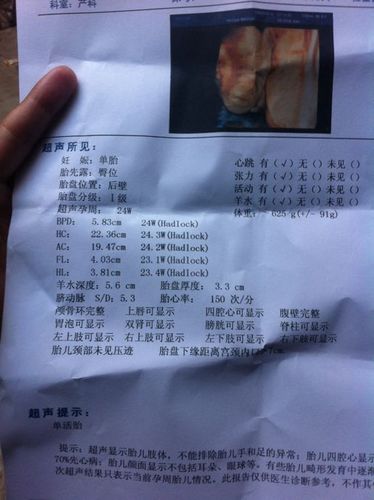 科室：产科
超声所见：
妊 娠：单胎
胎先露：臀位
胎盘位置：后壁
胎盘分级：I级
超声孕周： 24W
心跳 有（√）无（）未见（）
张力 有（√）无（）未见（）
活动 有（√）无（）未见（）
羊水 有（√）无（）未见（）
体重： 625g(+/- 91g)
BPD: 5.83cm 24W(Hadlock)
HC: 22.36cm 24.3W(Hadlock)
AC: 19.47cm 24.2W(Hadlock)
FL: 4.03cm 23.1W(Hadlock)
HL: 3.81cm 23.4W(Hadlock)
羊水深度：5.6 cm 胎盘厚度： 3.3 cm
脐动脉 S/D: 5.3 胎心率： 150 次/分
颅骨环完整 上唇可显示 四腔心可显示 腹壁完整
胃泡可显示 双肾可显示 膀胱可显示 脊柱可显示
左上肢可显示 右上肢可显示 左下肢可显示 右下肢可显示
胎儿颈部未见压迹 胎盘下缘距离宫颈内口>7cm
超声提示：
单活胎
提示：超声显示胎儿肢体，不能排除胎儿手和足的异常；胎儿四腔心显示
70%先心病；胎儿颜面显示不包括耳朵、眼球等，有些胎儿畸形发育中逐渐
次超声结果只表示当前孕周胎儿情况，此报告仅供医生诊断参考，不作其